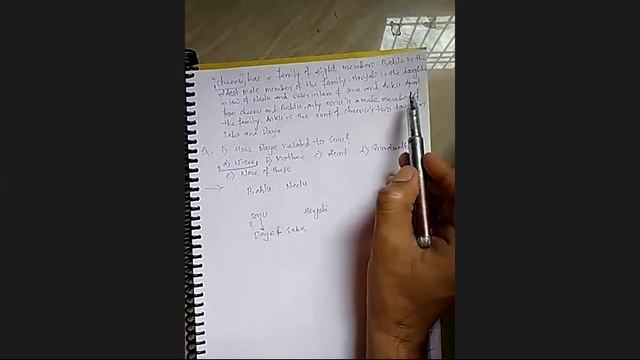 "cheenu" has a family of eight members Bablu is the
eldest male member of the family. Honjali is the daughter
in law of Neelu and Sister in law of Sonu and Anku. Apart
from cheenu and Bablu, only sonu is a male member of
the family. Anku is the aunt of cheenu's two daughters
Saba and Daya
Q. 1) How Daya related to Sonu?
a) Niece, b) Mother c) Aunt d) Grandmother
e) None of these
Bablu Neelu
sonu Honjali
Daya & Saba